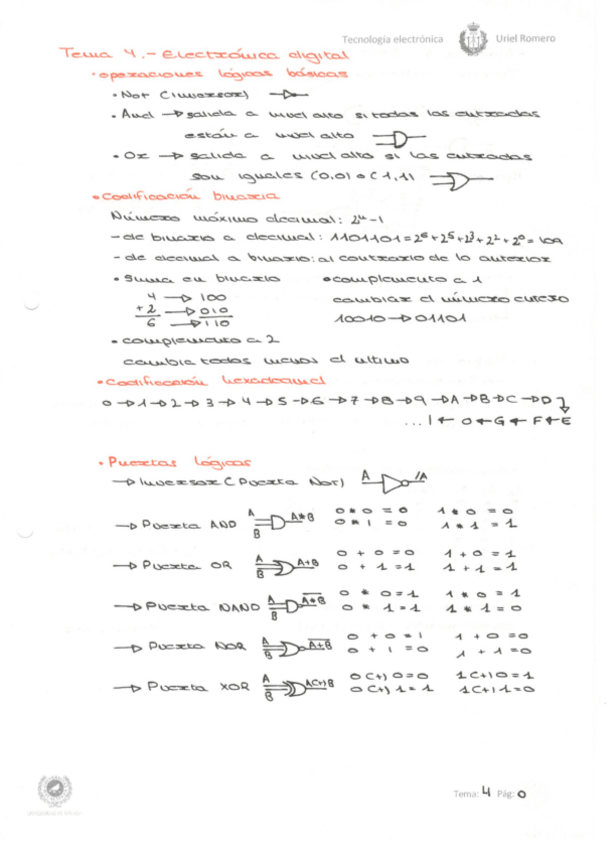 Tecnología electrónica Uriel Romero
Tema 4.- Electrónica digital
• operaciones lógicas básicas
• Not (inversor)
• And → salida a nivel alto si todas las entradas
están a nivel alto
• Or → salida a nivel alto si las entradas
son iguales (0,0) o (1,1)
• Codificación binaria
Número máximo decimal: 2ⁿ-1
- de binario a decimal: 1101101 = 2⁶+2⁵+2³+2²+2⁰ = 109
- de decimal a binario: al contrario de lo anterior
• Suma en binario
4 → 100
+2 → 010
6 → 110
• complemento a 1
cambiar el número entero
10010 → 01101
• complemento a 2
cambia todos menos el último
• Codificación hexadecimal
0 → 1 → 2 → 3 → 4 → 5 → 6 → 7 → 8 → 9 → A → B → C → D
... 1 ← 0 ← G ← F ← E
• Puertas lógicas
→ Inversor (Puerta Not) A /A
→ Puerta AND A B A*B 0 * 0 = 0 1 * 0 = 0
0 * 1 = 0 1 * 1 = 1
→ Puerta OR A B A+B 0 + 0 = 0 1 + 0 = 1
0 + 1 = 1 1 + 1 = 1
→ Puerta NAND A B A*B 0 * 0 = 1 1 * 0 = 1
0 * 1 = 1 1 * 1 = 0
→ Puerta NOR A B A+B 0 + 0 = 1 1 + 0 = 0
0 + 1 = 0 1 + 1 = 0
→ Puerta XOR A B A(+)B 0 (+) 0 = 0 1 (+) 0 = 1
0 (+) 1 = 1 1 (+) 1 = 0
Tema: 4 Pág: 0